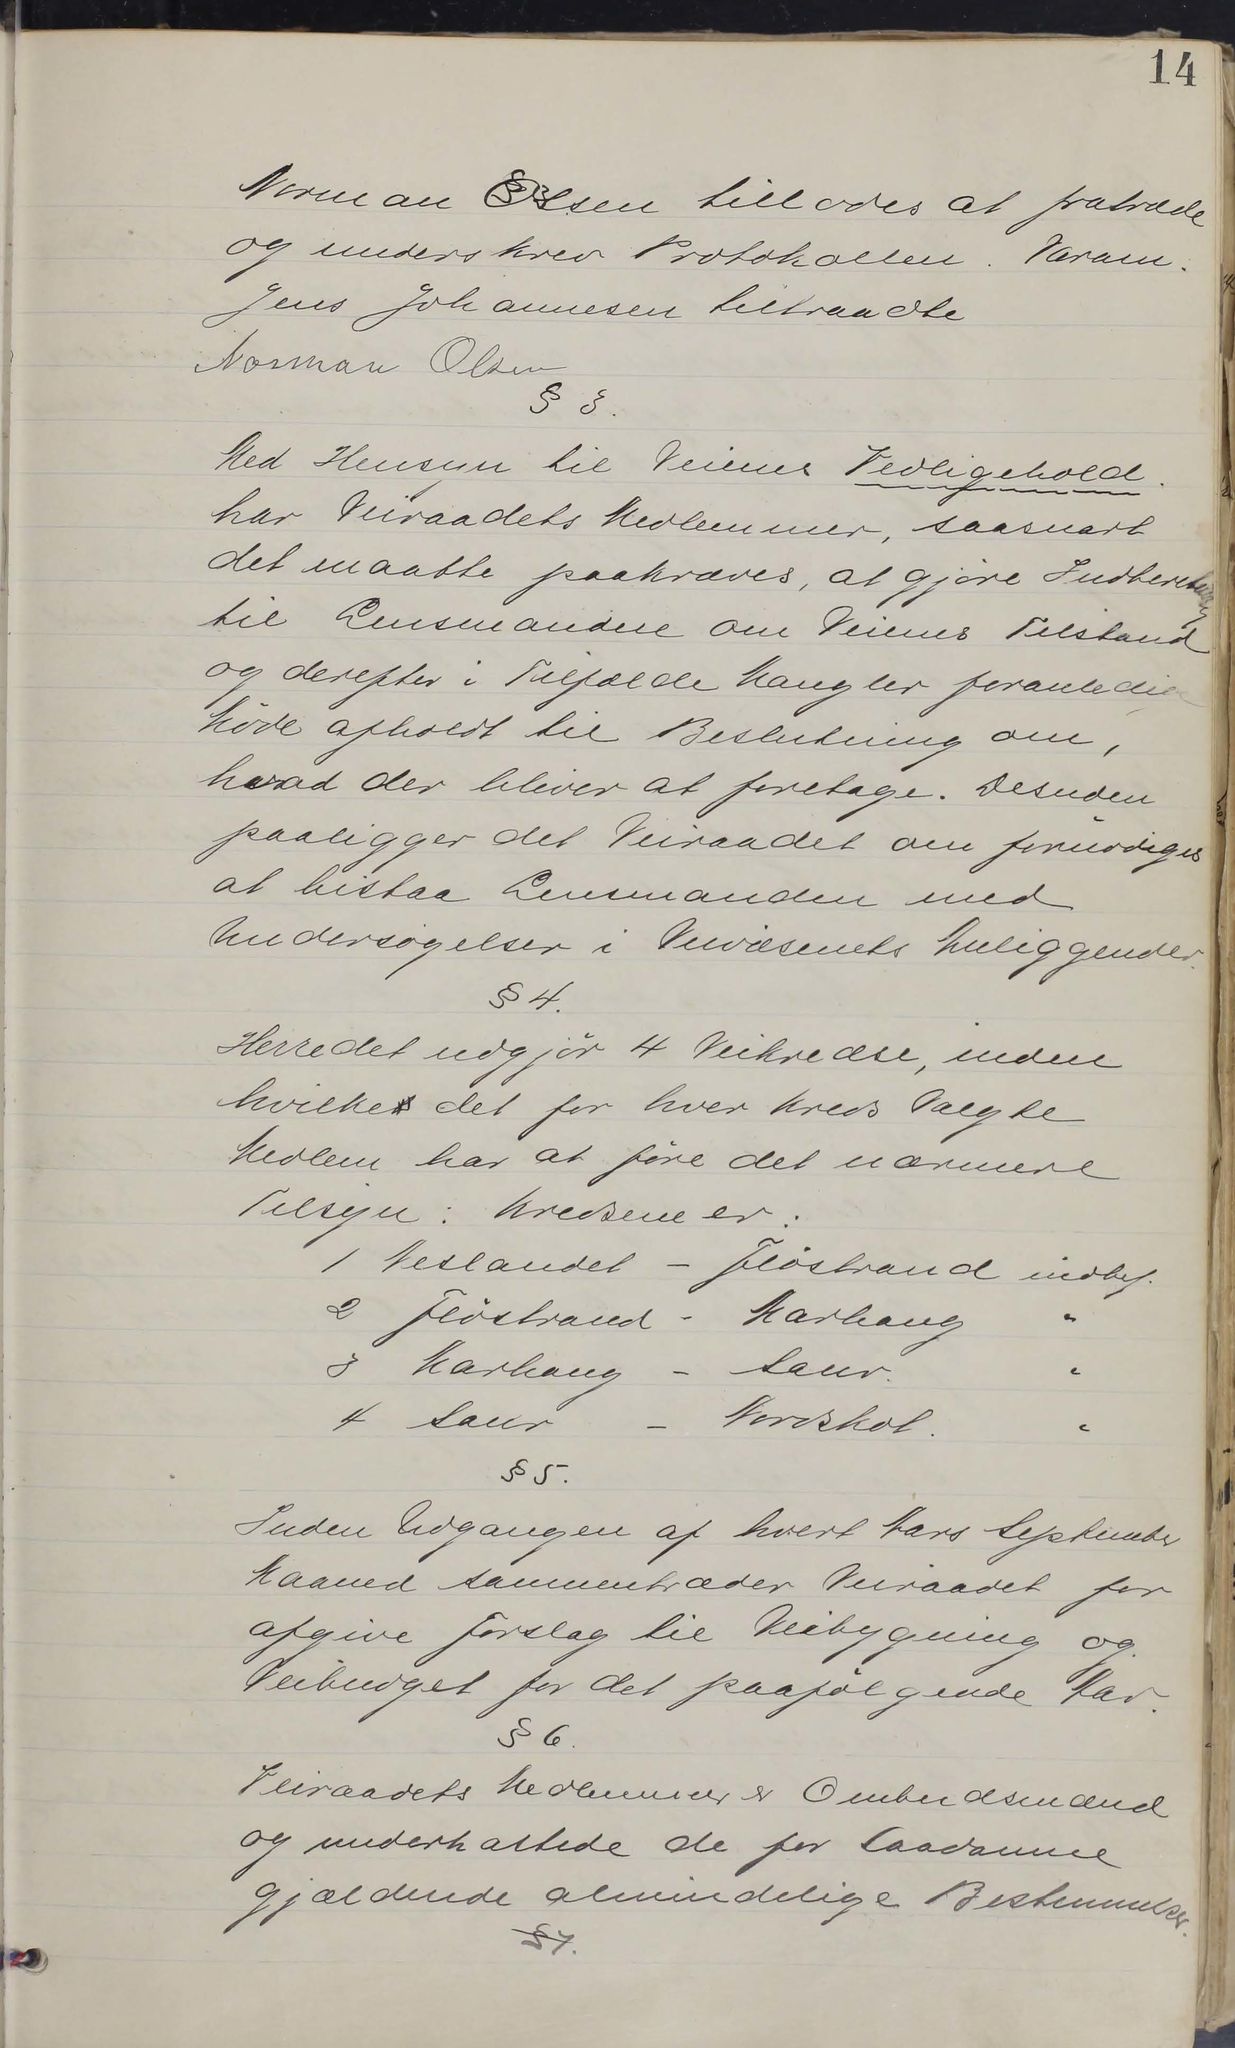 14
Norman Olsen tillodes at fratræde
og underskrev Protokollen. Varam.
Jens Johannesen tiltraadte
Norman Olsen
§ 3.
Med Hensyn til Veienes Vedligehold.
har Veiraadets Medlemmer, saasnart
det maatte paakræves, at gjøre Indberetning
til Lensmanden om Veienes Tilstand
og derefter i Tilfælde Mangler foranledige
Møde afholdt til Beslutning om,
hvad der bliver at foretage. Desuden
paaligger det Veiraadet om fornødiges
at bistaa Lensmanden med
Undersøgelser i Veivæsenets Anliggender.
§ 4.
Herredet udgjør 4 Veikredse, inden
hvilke det for hver Kreds Valgte
Medlem har at føre det nærmere
Tilsyn: Kredsene er:
1 Veslandet - Fløstrand indbef.
2 Fløstrand - Marhaug "
3 Marhaug - Saur. "
4 Saur - Nordskot. "
§ 5.
Inden Udgangen af hvert Aars September
Maaned sammentræder Veiraadet for
afgive Forslag til Veibygning og
Veibudget for det paafølgende Aar.
§ 6.
Veiraadets Medlemmer er Ombudsmænd
og underkastede de for saadanne
gjældende almindelige Bestemmelser.
§ 7.